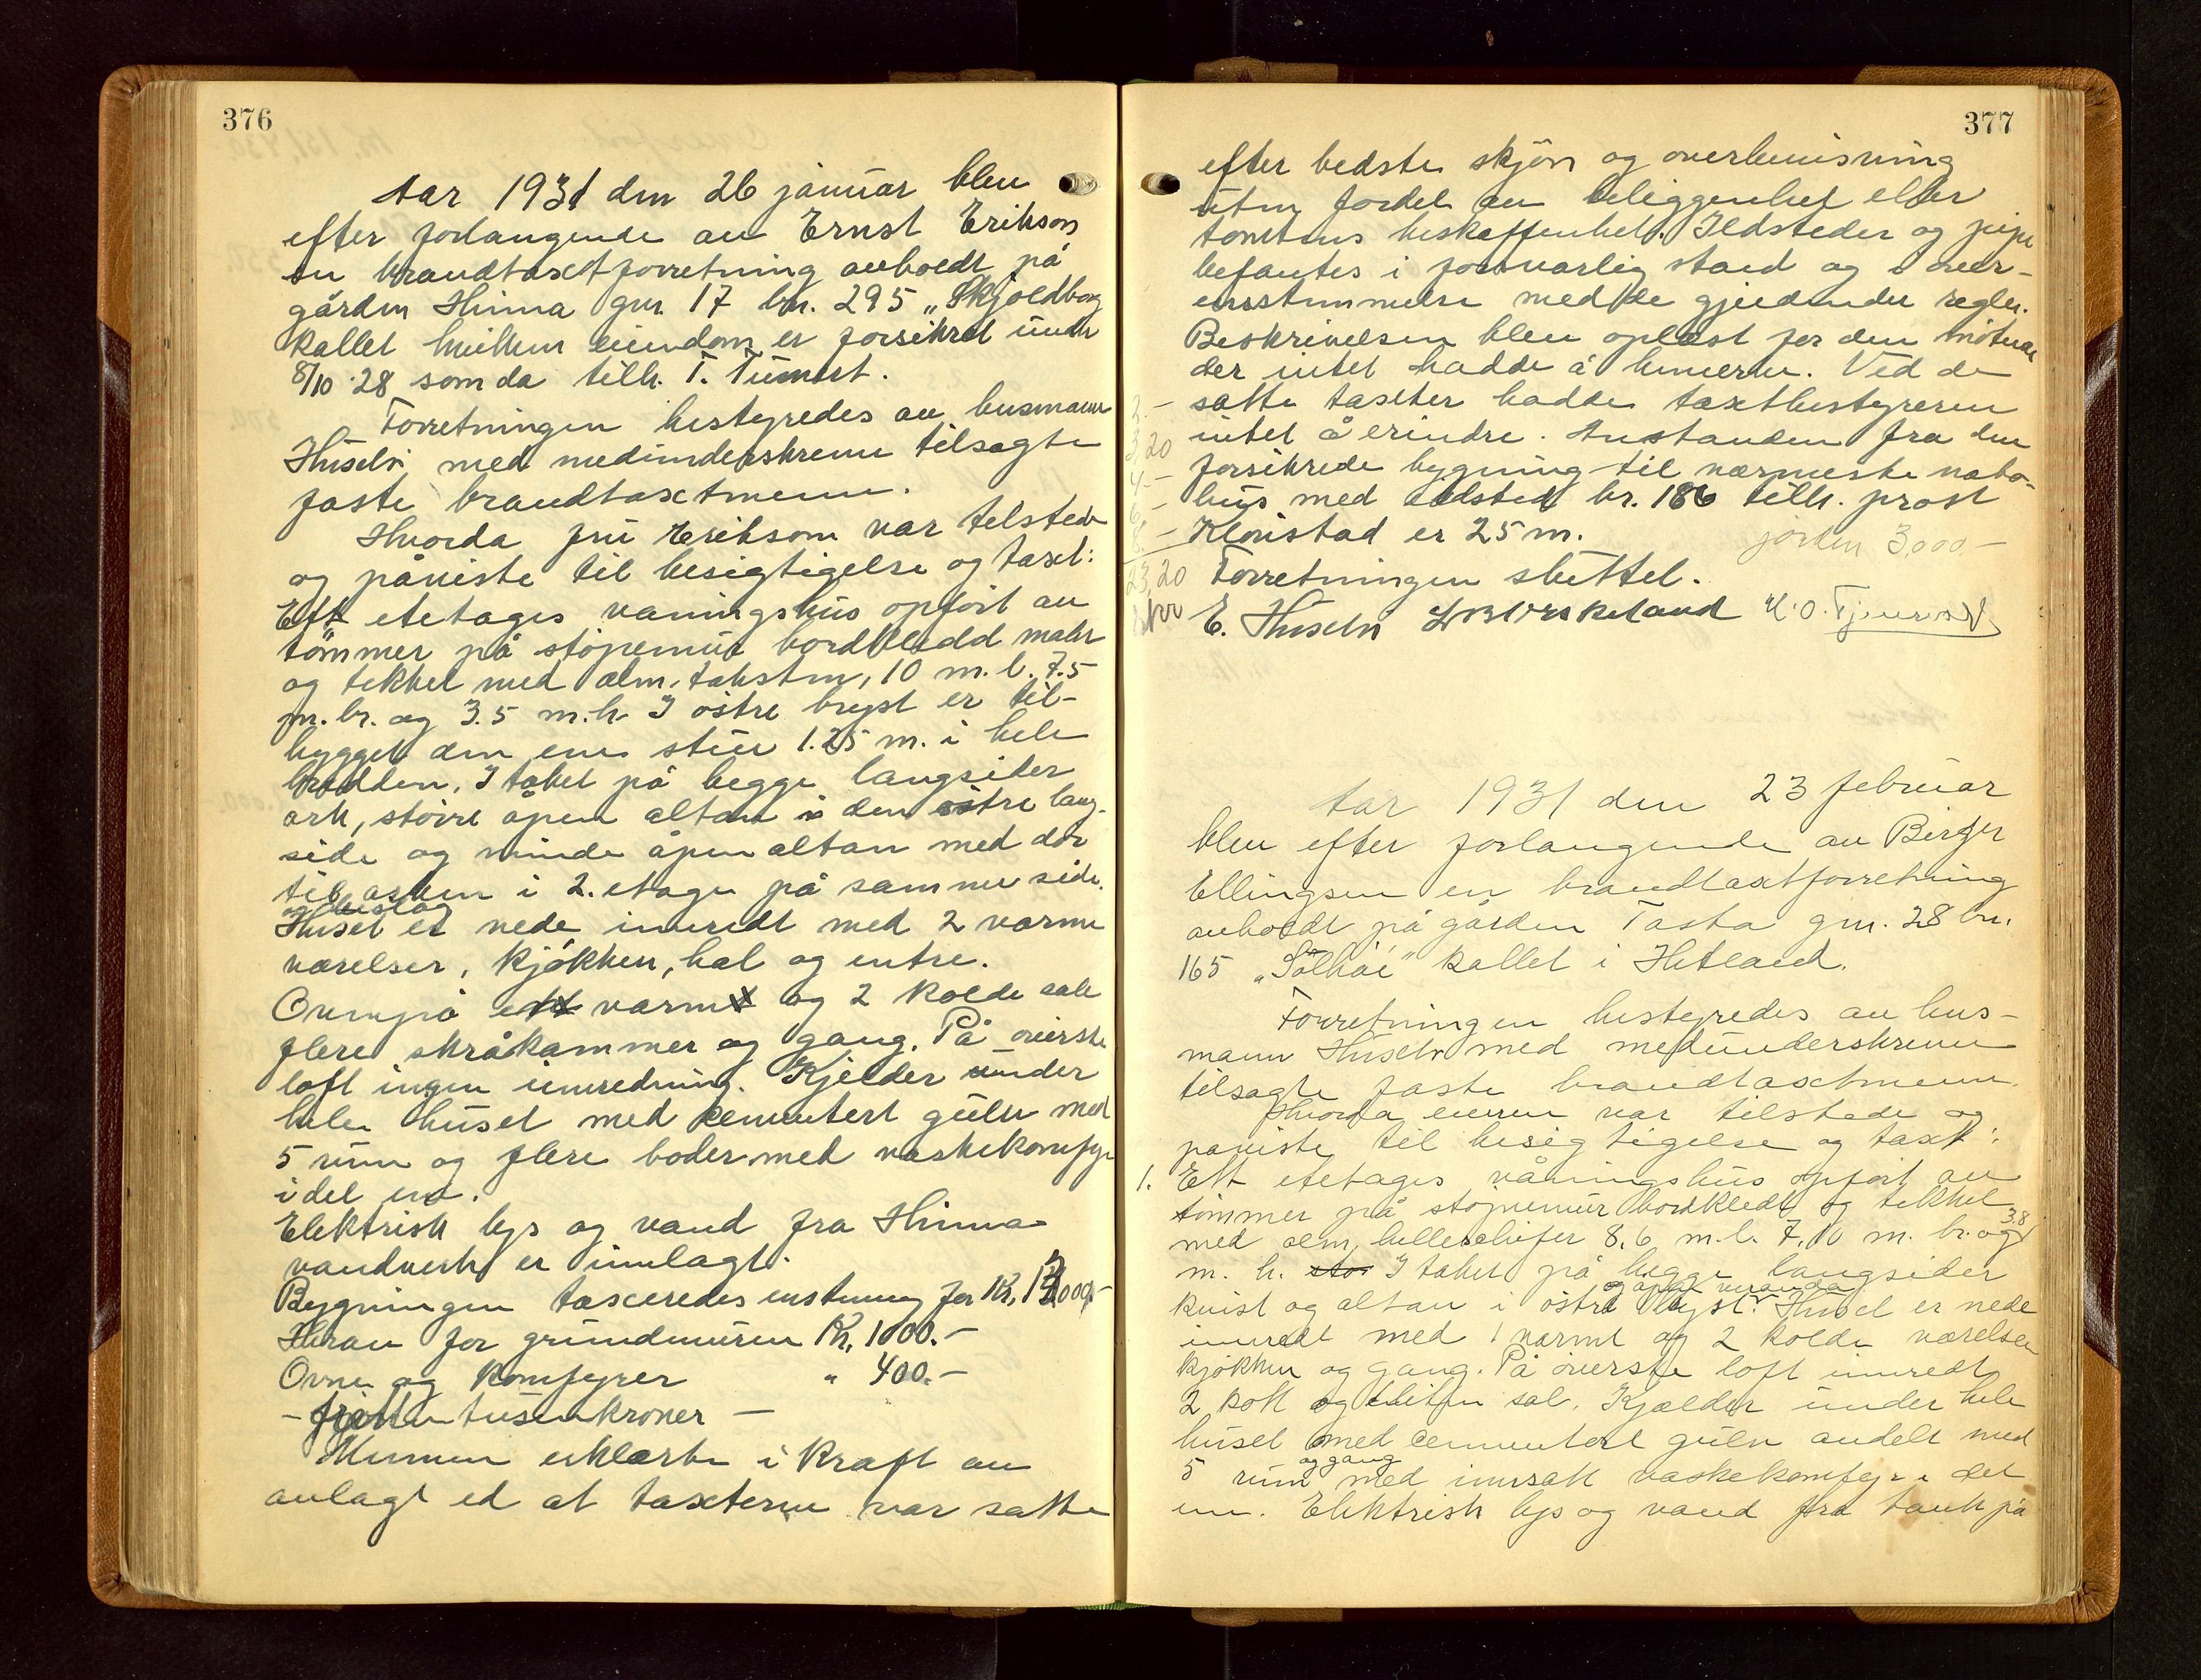 376
Aar 1931 den 26 januar blev
efter forlangende av Ernst Erikson
en brandtaxtforretning avholdt på
gården Hinna gnr. 17 bn. 295 „Skjoldborg
kallet hvilken eiendom er forsikret under
8/10 28 som da tilh. T.
Forretningen bestyredes av husmann
Husebø med medunderskrevne tilsagte
faste brandtaxtmenn.
Hvorda fru Erikson var tilstede
og påviste til besigtigelse og taxt:
Ett etetages våningshus opført av
tømmer på støpemur bordkledd malt
og tekket med alm. taksten, 10 m. l. 7.5
m. br. og 3.5 m. h. I østre bryst er til-
bygget den ene stue 1.25 m. i hele
bredden. I taket på begge langsider
ark, større åpen altan i den østre lang-
side og mindre åpen altan med dør
til arken i 2. etage på samme side.
og bislag
Huset er nede innredt med 2 varme
værelser, kjøkken, hal og entre.
Ovenpå ett varmt og 2 kolde sale
flere skråkammer og gang. På øverste
loft ingen innredning. Kjelder under
hele huset med cementert gulv med
5 rum og flere boder med vaskekomfyr
i det ene.
Elektrisk lys og vand fra Hinna
vandverk er innlagt.
Bygningen taxeredes enstemmig for Kr. 13000,-
Herav for grundmuren Kr. 1000.-
Ovner og komfyrer " 400.-
- fjetten tusen kroner -
Mennene erklærte i kraft av
avlagt ed at taxterne var satte
377
efter bedste skjøn og overbevisning
uten fordel av beliggenhet eller
tomtens beskaffenhet. Ildsteder og pipe
befantes i forsvarlig stand og i over-
ensstemmelse med de gjeldende regler.
Beskrivelsen blev oplest for den møtende
der intet hadde å bemerke. Ved de
satte taxter hadde taxtbestyreren
intet å erindre. Avstanden fra den
forsikrede bygning til nærmeste nabo-
hus med ildsted br. 186 tilh. prost
Klovstad er 25 m. jorden 3,000,-
Forretningen sluttet.
E. Husebø
2.-
3,20
4.-
6.-
8.-
23,20
Aar 1931 den 23 februar
blev efter forlangende av Birger
Ellingsen en brandtaxtforretning
avholdt på gården Tasta gnr. 28 bn.
165 „Solhøi" kallet i Hetland.
Forretningen bestyredes av hus-
mann Husebø med medunderskrevne
tilsagte faste brandtaxtmenn.
Hvorda eieren var tilstede og
påviste til besigtigelse og taxt:
1. Ett etetages våningshus opført av
tømmer på støpemur bordkledt og tekket
med alm. helleskifer 8.6 m. l. 7.10 m. br. og 3.8
m. h. I taket på begge langsider
og åpen veranda
kvist og altan i østre bryst. Huset er nede
innredt med 1 varmt og 2 kolde værelser
kjøkken og gang. På øverste loft innredt
2 kott og eliten sal. Kjælder under hele
huset med cementert gulv andelt med
og gang
5 rum med innsatt vaskekomfyr i det
ene. Elektrisk lys og vand fra tank på